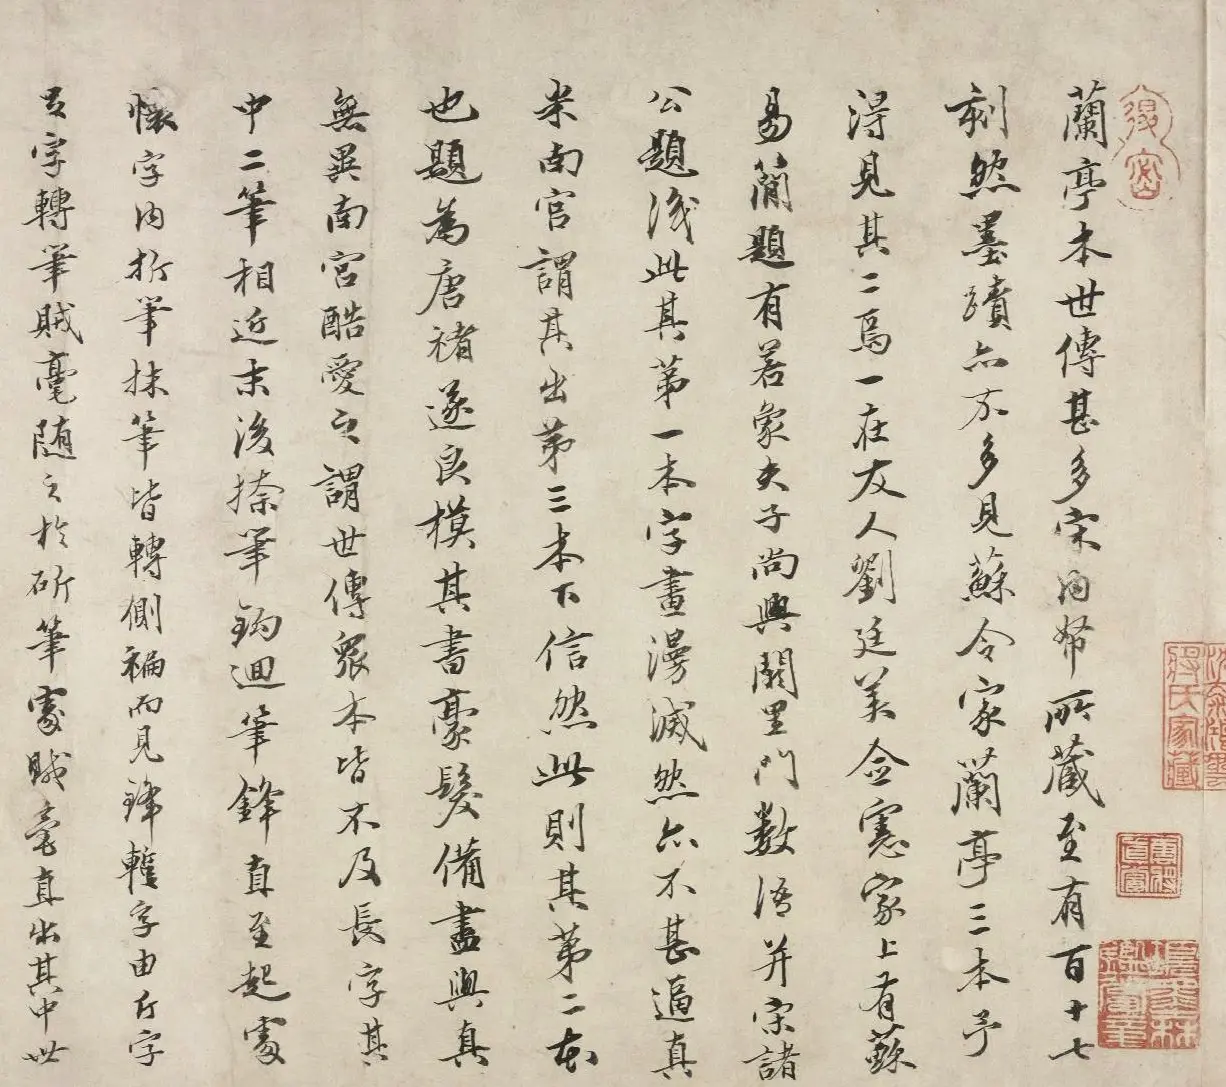 蘭亭本世傳甚多宋內帑所藏至有百十七
刻然墨蹟亦不多見蘇令家蘭亭三本予
得見其二焉一在友人劉廷美僉憲家上有蘇
易簡題有若象夫子尚興闕里門數語并宋諸
公題識此其第一本字畫漫滅然亦不甚逼真
米南宮謂其出第三本下信然此則其第二本
也題為唐褚遂良模其書豪髮備盡與真
無異南宮酷愛之謂世傳眾本皆不及長字其
中二筆相近末後捺筆鈎迴筆鋒直至起處
懷字內折筆抹筆皆轉側褊而見鋒蹔字內斤字
足字轉筆賊毫隨之於斫筆處賊毫直出其中世
蔣氏家藏